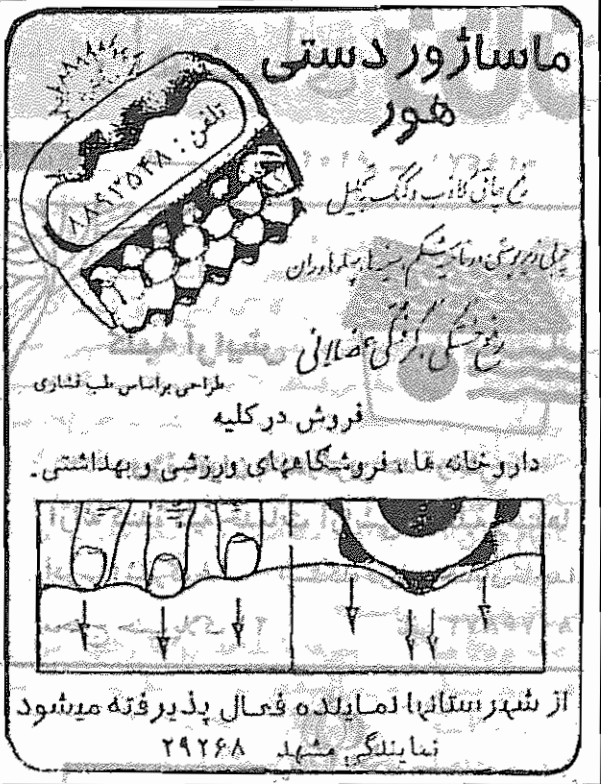 ماساژور دستی
هور
تلفن: ۸۸۹۲۵۴۸
رفع چاقی کاذب و کمک به تحلیل
چربی زیرپوستی در ناحیه شکم، سینه، پهلو و ران
رفع خستگی، گرفتگی عضلانی
طراحی براساس طب فشاری
فروش در کلیه
داروخانه ها، فروشگاههای ورزشی و بهداشتی.
از شهرستانها نماینده فعال پذیرفته میشود
نمایندگی مشهد ۲۹۲۶۸